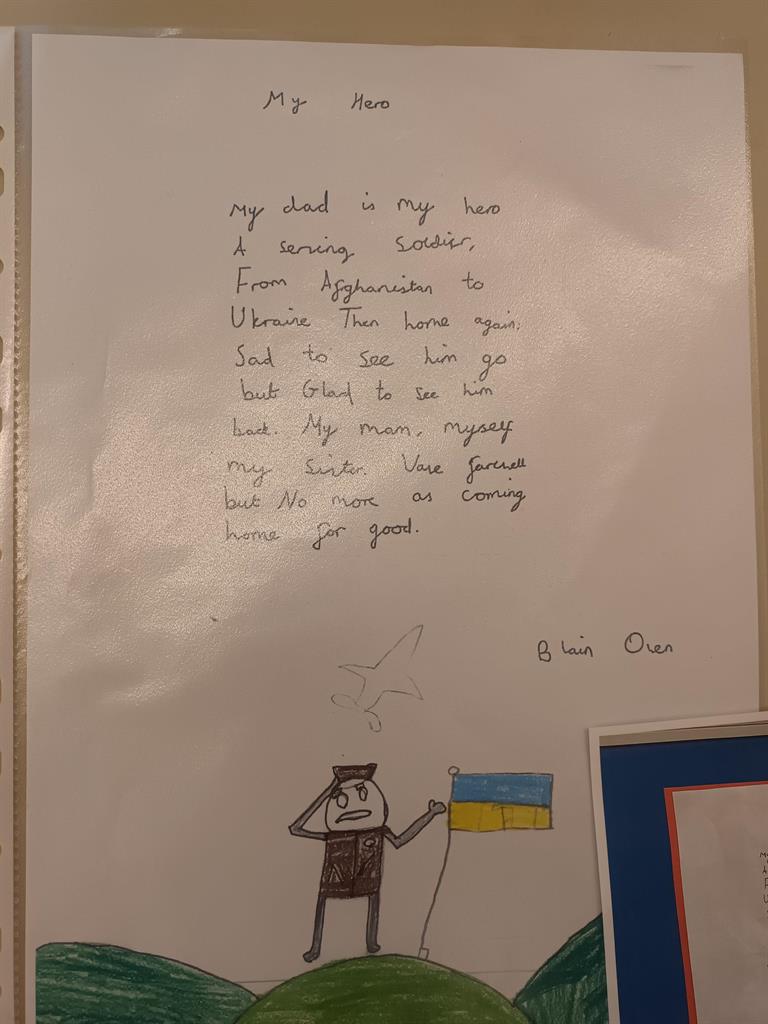 My Hero
My dad is my hero
A serving Soldier,
From Afghanistan to
Ukraine Then home again.
Sad to see him go
but Glad to see him
back. My mam, myself
my Sister. Vave farewell
but No more as coming
home for good.
Blain Owen